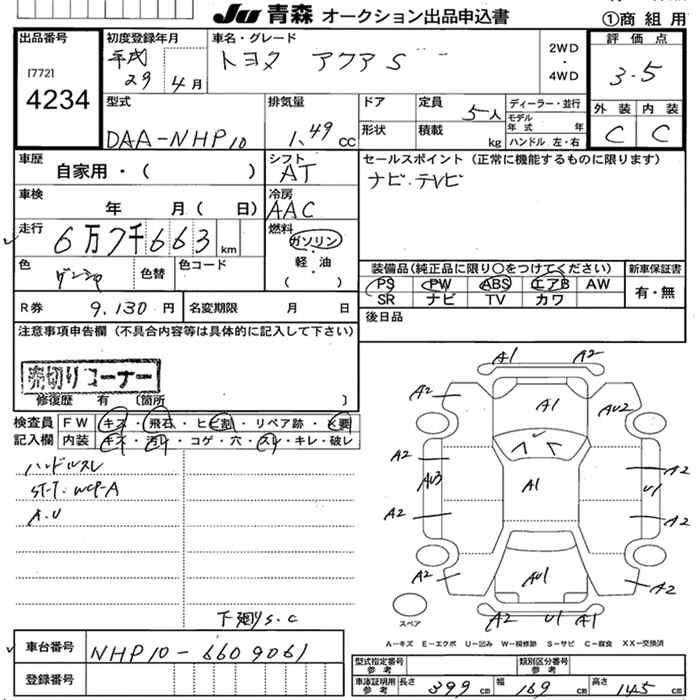 JU 青森 オークション出品申込書
①商 組 用
出品番号
[772]
4234
初度登録年月
平成
29 4月
車名・グレード
トヨタ アクア S
2WD
・
4WD
評価点
3.5
外装 内装
C C
型式
DAA-NHP10
排気量
1.49 CC
ドア
形状
定員
5人
積載
kg
ディーラー・並行
モデル
年式 年
ハンドル 左・右
車歴
自家用・( )
シフト
AT
セールスポイント(正常に機能するものに限ります)
ナビ・TVビ
車検
年 月( 日)
冷房
AAC
走行
6万7千663 km
燃料
ガソリン
軽・油
( )
色
色替
色コード
装備品(純正品に限り〇をつけてください)
PS PW ABS エアB AW
SR ナビ TV カワ
新車保証書
有・無
R券 9,130 円
名変期限 月 日
後日品
注意事項申告欄(不具合内容等は具体的に記入して下さい)
売切りコーナー
修復歴 有 〔箇所 〕
検査員
記入欄
FW キズ・飛石・ヒビ割・リペア跡・×要
内装 キズ・汚レ・コゲ・穴・スレ・キレ・破レ
ハンドルスレ
ST-T・WCP-A
A.U
下廻りS.C
A1 A2
A2 A1 AU2
A2 AU3 A1 U1 A2
A2 A2
A2 AU1 A2
A2 U1 A1
スペア
A-キズ E-エクボ U-凹み W-補修跡 S-サビ C-腐食 XX-交換済
車台番号
NHP10-6609061
登録番号
型式指定番号
参考
類別区分番号
参考
車庫証明用
参考
長さ 399 cm 幅 169 cm 高さ 145 cm